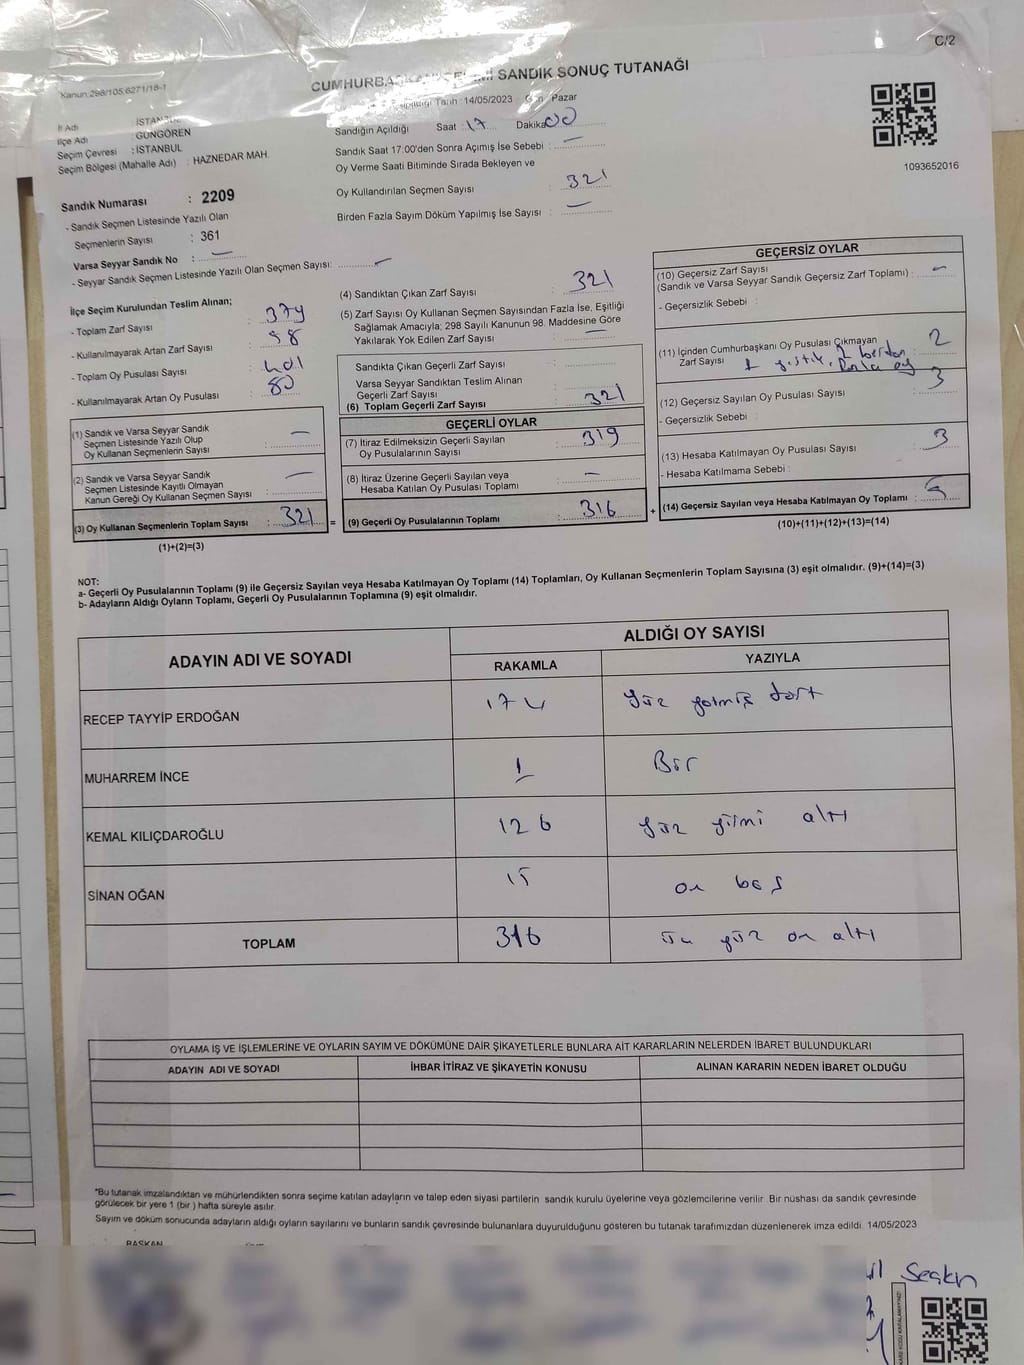 C/2
Kanun:298/105,6271/18-1
SANDIK SONUÇ TUTANAĞI
Tarih :14/05/2023 Gün Pazar
İl Adı
İlçe Adı : GÜNGÖREN
Seçim Çevresi : İSTANBUL
Seçim Bölgesi (Mahalle Adı) : HAZNEDAR MAH.
1093652016
Sandığın Açıldığı Saat 17 Dakika 00
Sandık Saat 17:00'den Sonra Açımış İse Sebebi : —
Oy Verme Saati Bitiminde Sırada Bekleyen ve
Oy Kullandırılan Seçmen Sayısı : 321
Birden Fazla Sayım Döküm Yapılmış İse Sayısı : —
Sandık Numarası : 2209
- Sandık Seçmen Listesinde Yazılı Olan
Seçmenlerin Sayısı : 361
Varsa Seyyar Sandık No : —
- Seyyar Sandık Seçmen Listesinde Yazılı Olan Seçmen Sayısı: —
İlçe Seçim Kurulundan Teslim Alınan;
- Toplam Zarf Sayısı :
- Kullanılmayarak Artan Zarf Sayısı :
- Toplam Oy Pusulası Sayısı : 401
- Kullanılmayarak Artan Oy Pusulası : 80
(1) Sandık ve Varsa Seyyar Sandık
Seçmen Listesinde Yazılı Olup
Oy Kullanan Seçmenlerin Sayısı : —
(2) Sandık ve Varsa Seyyar Sandık
Seçmen Listesinde Kayıtlı Olmayan
Kanun Gereği Oy Kullanan Seçmen Sayısı : —
(3) Oy Kullanan Seçmenlerin Toplam Sayısı : 321 =
(1)+(2)=(3)
(4) Sandıktan Çıkan Zarf Sayısı : 321
(5) Zarf Sayısı Oy Kullanan Seçmen Sayısından Fazla İse, Eşitliği
Sağlamak Amacıyla; 298 Sayılı Kanunun 98. Maddesine Göre
Yakılarak Yok Edilen Zarf Sayısı : —
Sandıkta Çıkan Geçerli Zarf Sayısı :
Varsa Seyyar Sandıktan Teslim Alınan
Geçerli Zarf Sayısı :
(6) Toplam Geçerli Zarf Sayısı : 321
GEÇERLİ OYLAR
(7) İtiraz Edilmeksizin Geçerli Sayılan
Oy Pusulalarının Sayısı : 319
(8) İtiraz Üzerine Geçerli Sayılan veya
Hesaba Katılan Oy Pusulası Toplamı : —
(9) Geçerli Oy Pusulalarının Toplamı : 316 +
GEÇERSİZ OYLAR
(10) Geçersiz Zarf Sayısı
(Sandık ve Varsa Seyyar Sandık Geçersiz Zarf Toplamı) : —
- Geçersizlik Sebebi :
(11) İçinden Cumhurbaşkanı Oy Pusulası Çıkmayan
Zarf Sayısı : 2
(12) Geçersiz Sayılan Oy Pusulası Sayısı : 3
- Geçersizlik Sebebi :
(13) Hesaba Katılmayan Oy Pusulası Sayısı : 3
- Hesaba Katılmama Sebebi :
(14) Geçersiz Sayılan veya Hesaba Katılmayan Oy Toplamı :
(10)+(11)+(12)+(13)=(14)
NOT:
a- Geçerli Oy Pusulalarının Toplamı (9) ile Geçersiz Sayılan veya Hesaba Katılmayan Oy Toplamı (14) Toplamları, Oy Kullanan Seçmenlerin Toplam Sayısına (3) eşit olmalıdır. (9)+(14)=(3)
b- Adayların Aldığı Oyların Toplamı, Geçerli Oy Pusulalarının Toplamına (9) eşit olmalıdır.
ADAYIN ADI VE SOYADI ALDIĞI OY SAYISI
RAKAMLA YAZIYLA
RECEP TAYYİP ERDOĞAN 174 yüz yetmiş dört
MUHARREM İNCE 1 Bir
KEMAL KILIÇDAROĞLU 126 yüz yirmi altı
SİNAN OĞAN 15 on beş
TOPLAM 316 üç yüz on altı
OYLAMA İŞ VE İŞLEMLERİNE VE OYLARIN SAYIM VE DÖKÜMÜNE DAİR ŞİKAYETLERLE BUNLARA AİT KARARLARIN NELERDEN İBARET BULUNDUKLARI
ADAYIN ADI VE SOYADI İHBAR İTİRAZ VE ŞİKAYETİN KONUSU ALINAN KARARIN NEDEN İBARET OLDUĞU
*Bu tutanak imzalandıktan ve mühürlendikten sonra seçime katılan adayların ve talep eden siyasi partilerin sandık kurulu üyelerine veya gözlemcilerine verilir. Bir nüshası da sandık çevresinde
görülecek bir yere 1 (bir ) hafta süreyle asılır.
Sayım ve döküm sonucunda adayların aldığı oyların sayılarını ve bunların sandık çevresinde bulunanlara duyurulduğunu gösteren bu tutanak tarafımızdan düzenlenerek imza edildi. 14/05/2023
BAŞKAN
Seçkin